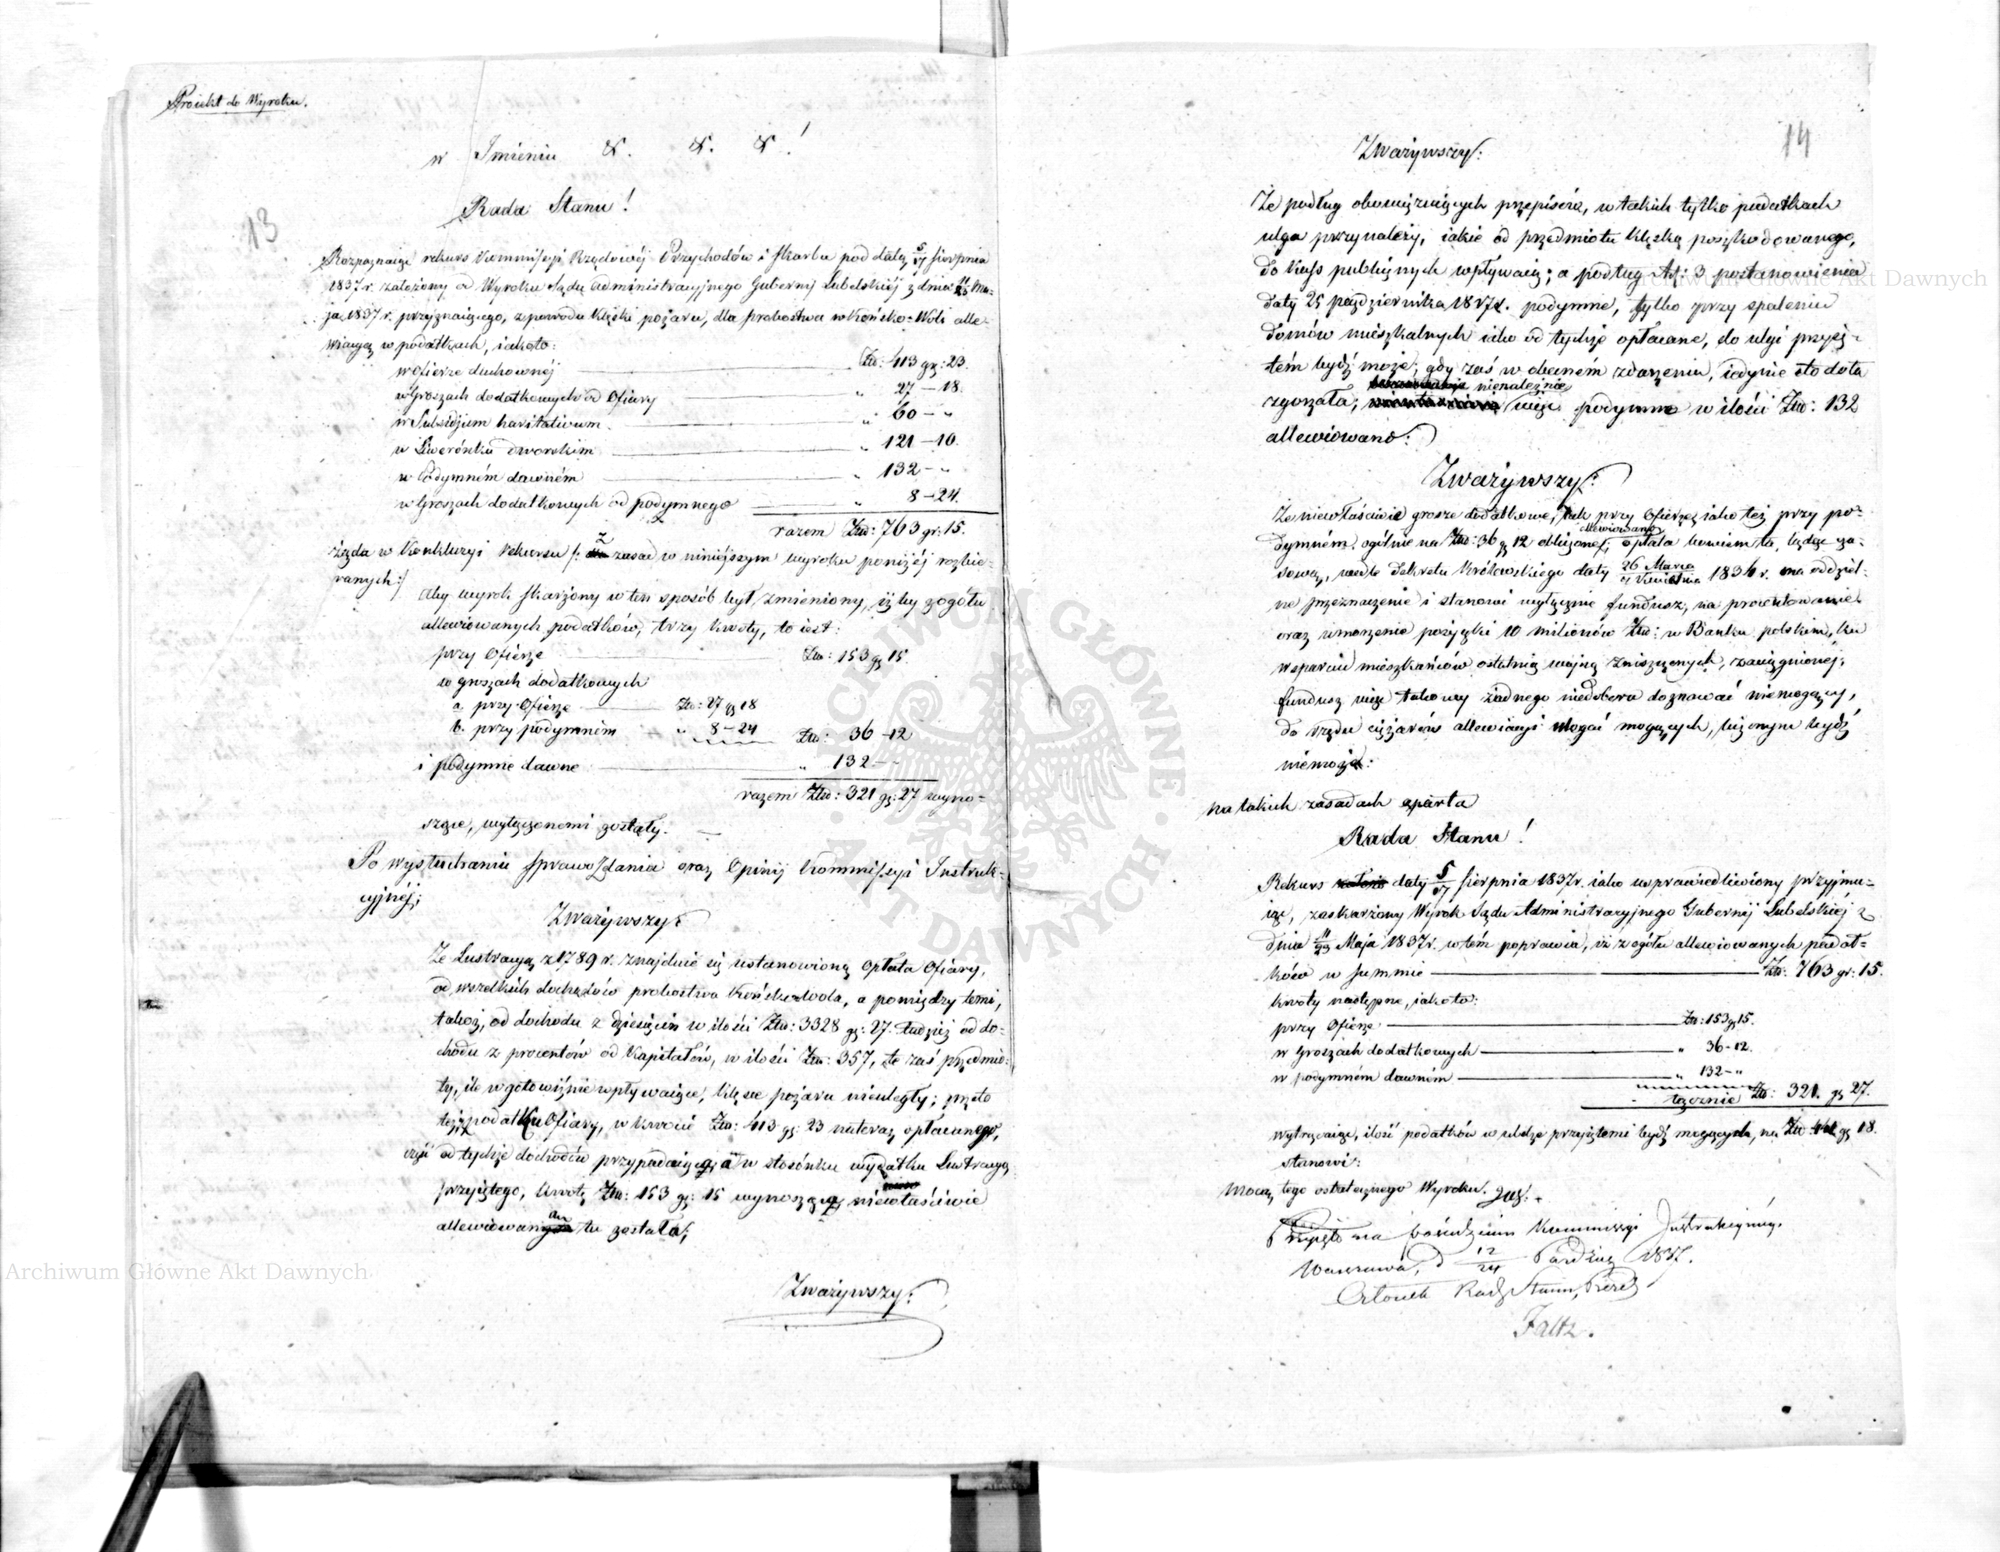 Projekt do Wyroku.
w Imieniu &. &. &!
Rada Stanu!
13
Rozpoznaiąc rekurs Kommissyi Rządowéj Przychodów i Skarbu pod datą 5/17 Sierpnia
1837 r. założony od Wyroku Sądu Administracyjnego Gubernij Lubelskiéj z dnia 11/23 Ma-
ja 1837 r. przyznaiącego, z powodu klęski pożaru, dla probostwa w Końsko-Woli alle-
wiacyą w podatkach, iakoto:
w ofierze duchownéj Złp: 413 gr: 23.
w Groszach dodatkowych od Ofiary " 27 – 18.
w Subsidjum haritativum " 60 – "
w Liwerónku dworskim " 121 – 10.
w Podymném dawném " 132 – "
w Groszach dodatkowych od podymnego " 8 – 24.
razem Złp: 763 gr: 15.
żąda w Konkluzyi rekursu /: z zasad w niniejszym wyroku poniżéj rozbie-
ranych:/
Aby wyrok skarżony w ten sposób był zmieniony, iżby z ogółu
allewiowanych podatków, trzy kwoty, to iest:
przy Ofierze Złp: 153 gr 15.
w groszach dodatkowych
a. przy Ofierze Złp: 27 gr 18
b. przy podymném " 8 – 24 Złp: 36 – 12
i podymne dawne " 132 – "
razem Złp: 321 gr: 27 wyno-
szące, wyłączonemi zostały.
Po wysłuchaniu Sprawozdania oraz Opinij Kommissyi Instruk-
cyjnéj;
Zważywszy:
Że Lustracyą z 1789 r. znajduie się ustanowioną Opłata Ofiary,
od wszelkich dochodów probostwa Końskowola, a pomiędzy temi,
takoż, od dochodu z dziesięcin w ilości Złp: 3328 gr: 27. tudzież od do-
chodu z procentów od Kapitałów, w ilości Złp: 357, te zaś przedmio-
ty, ile w gotowiźnie wpływaiące, klęsce pożaru nieuległy; przeto
też podatku Ofiary, w kwocie Złp: 413 gr: 23 na teraz opłacanego,
część od tychże dochodów przypadaiąca a w stosunku wydatku Lustracyą
przyiętego, kwotę Złp: 153 gr: 15 wynosząca, niewłaściwie
allewiowaną tu została;
Zważywszy:
14
Zważywszy:
Że podług obowiązuiących przepisów, w takich tylko podatkach
ulga przynależy, iakie od przedmiotu klęską poszkodowanego,
do Kass publicznych wpływaią; a podług Art: 3 postanowienia
daty 25 października 1817 r. podymne, tylko przy spaleniu
domów mieszkalnych iako od tychże opłacane, do ulgi przyię-
tém bydź może; gdy zaś w obecném zdarzeniu, iedynie stodoła
zgorzała; nienależnie więc podymne w ilości Złp: 132
allewiowano:
Zważywszy:
Że niewłaściwie grosze dodatkowe, tak przy Ofierze iako też przy po-
dymném ogólnie na Złp: 36 gr 12 obliczone allewiowano; opłata bowiem ta, będąc cza-
sową, wedle Dekretu Królewskiego daty 26 Marca/7 Kwietnia 1836 r. ma oddziel-
ne przeznaczenie i stanowi wyłącznie fundusz, na procentowanie
oraz umorzenie pożyczki 10 milionów Złp: w Banku polskim, ku
wsparciu mieszkańców ostatnią wojną zniszczonych, zaciągnionéj;
fundusz więc takowy żadnego niedoboru doznawać niemogący,
do rzędu ciężarów allewiacyi uledz mogących, liczonym bydź
niemoże:
na takich zasadach oparta
Rada Stanu!
Rekurs daty 5/17 Sierpnia 1837 r. iako usprawiedliwiony przyjmu-
iąc, zaskarżony Wyrok Sądu Administracyjnego Gubernij Lubelskiéj z
dnia 11/23 Maja 1837 r. w tém poprawia, iż z ogółu allewiowanych podat-
ków w summie Złp: 763 gr: 15.
kwoty następne, iakoto:
przy Ofierze Złp: 153 gr 15.
w Groszach dodatkowych " 36 – 12.
w podymném dawném " 132 – "
łącznie Złp: 321. gr 27.
wytrącaiąc, ilość podatków w uldze przyiętemi bydź mogących, na Złp: 441 gr 18.
stanowi:
Mocą tego ostatecznego Wyroku.
Przyięto na posiedzeniu Kommissyi Instrukcyjnéj.
Warszawa, d 12/24 Paźdz: 1837.
Członek Rady Stanu, Prezes
Faltz.
Archiwum Główne Akt Dawnych
Archiwum Główne Akt Dawnych
ARCHIWUM GŁÓWNE · AKT DAWNYCH ·